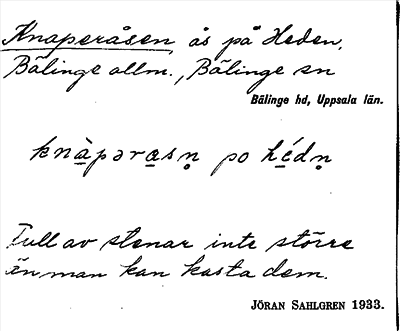 Knaperåsen, ås på Heden,
Bälinge allm., Bälinge sn
Bälinge hd, Uppsala län.
knàpərasn̥ po hédn̥
Full av stenar inte större
än man kan kasta dem.
JÖRAN SAHLGREN 1933.